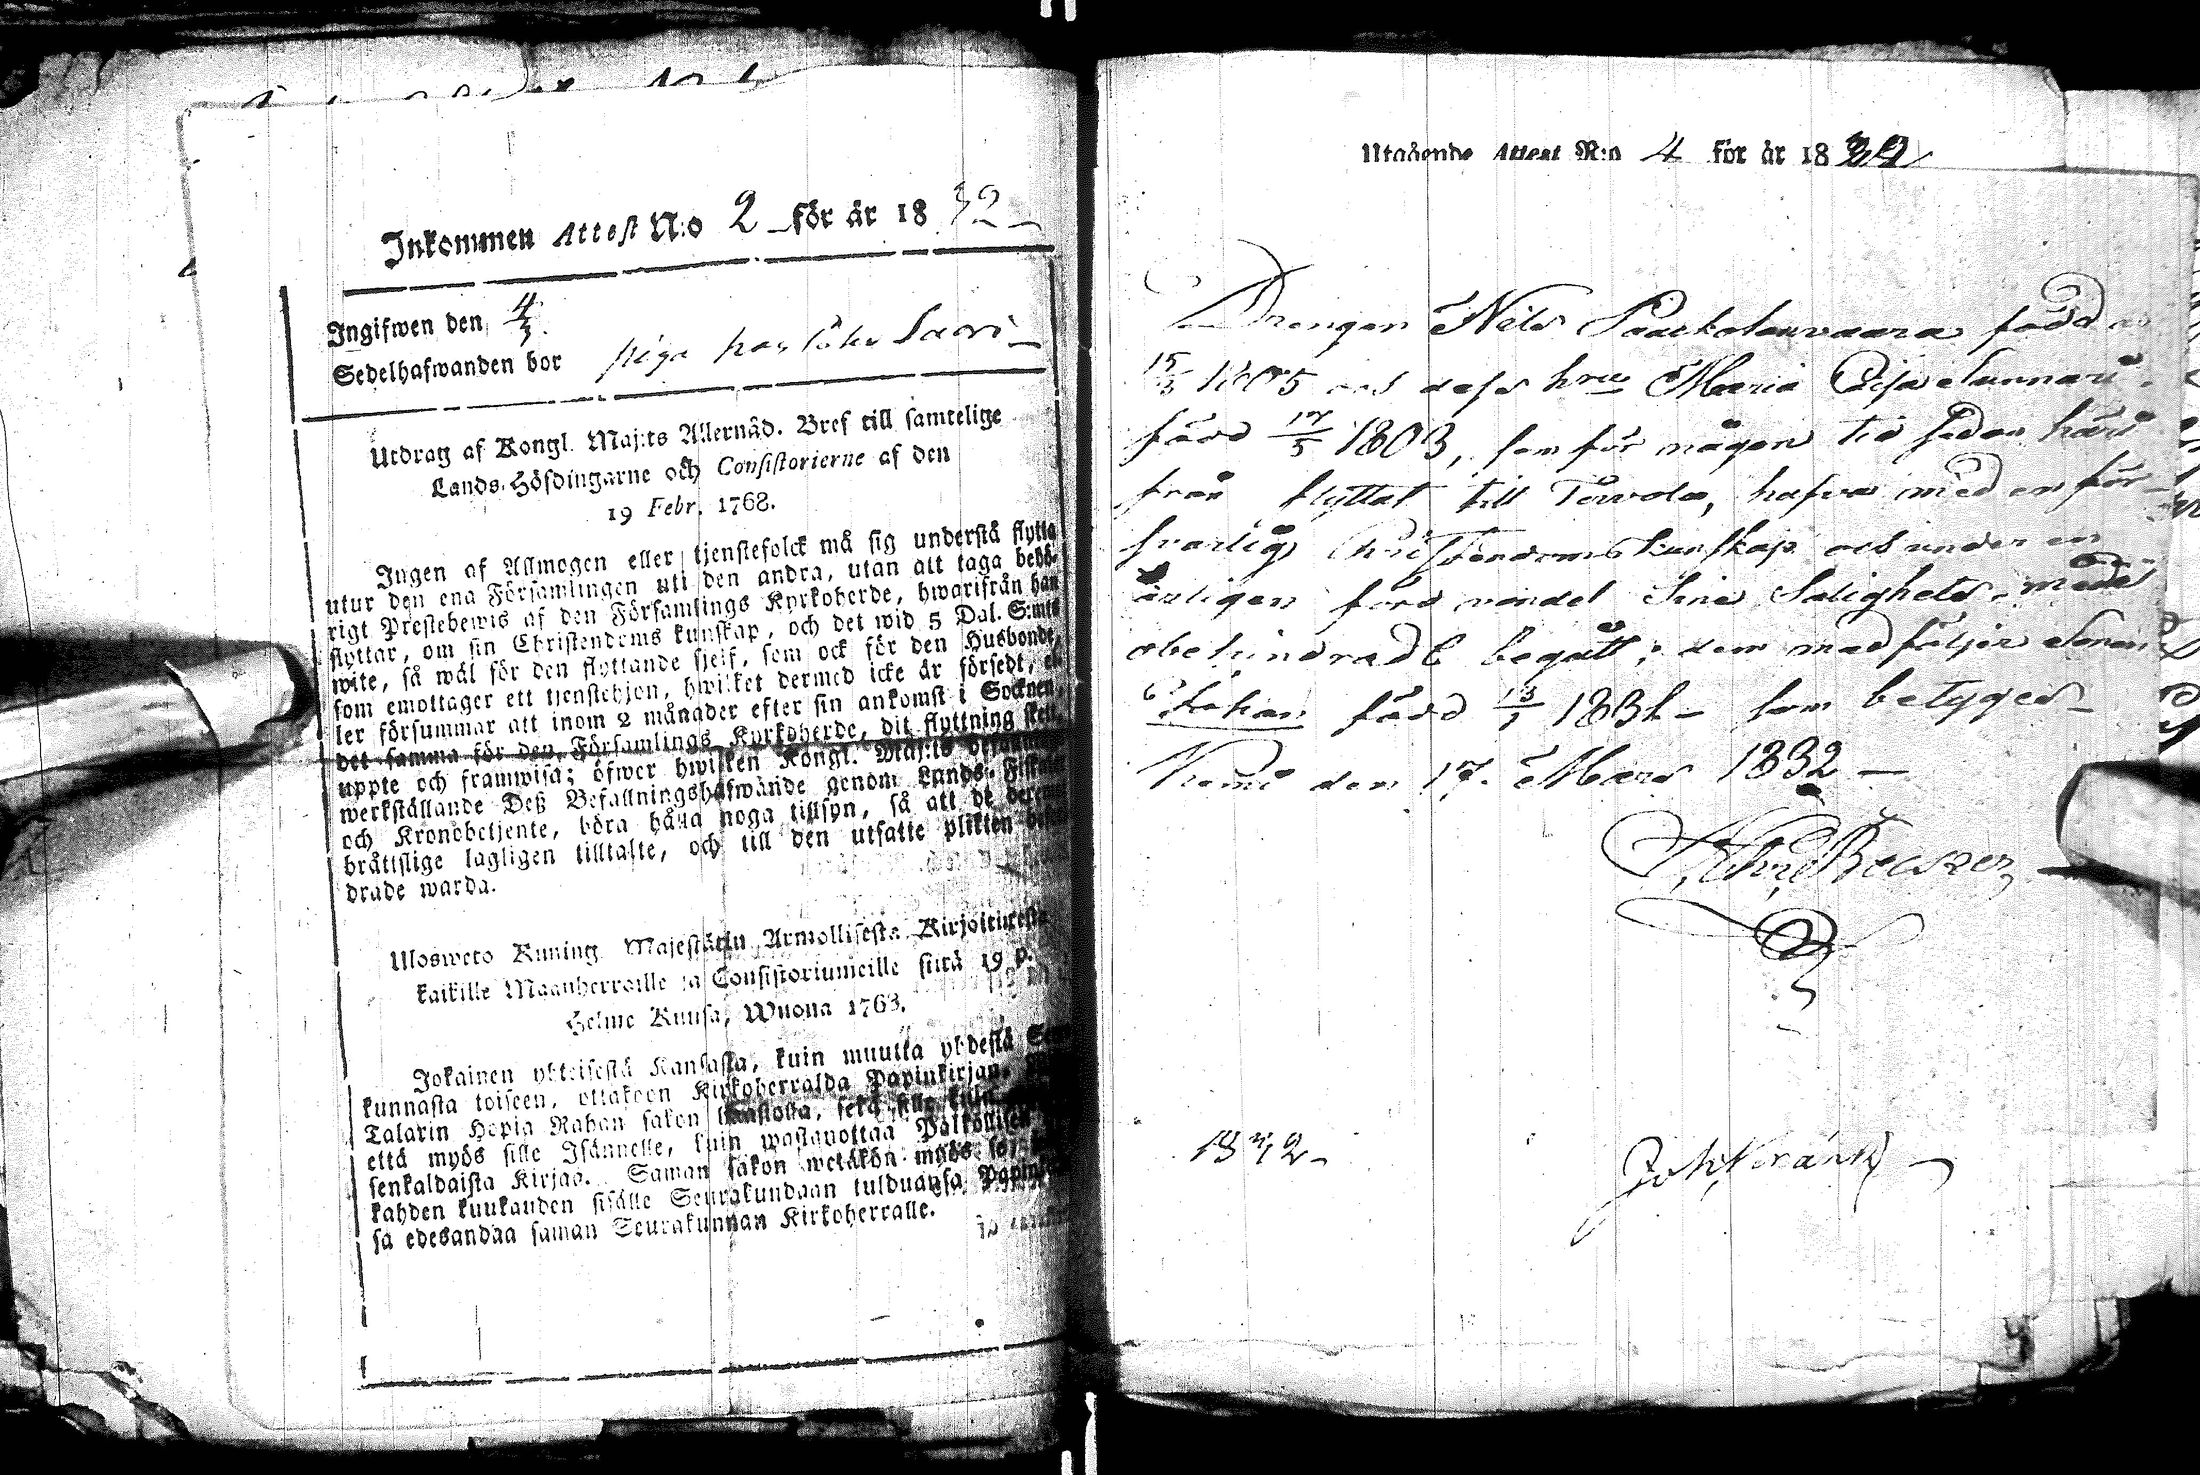 Inkommen Attest N:o 2 för år 1832
Ingifwen den 4/3.
Sedelhafwanden bor piga hos
Utdrag af Kongl. Maj:ts Allernåd. Bref till samtelige
Lands-Höfdingarne och Consistorierne af den
19 Febr. 1768.
Ingen af Allmogen eller tjenstefolck må sig understå flytta
utur den ena Församlingen uti den andra, utan att taga behö-
rigt Prestebewis af den Församlings Kyrkoherde, hwarifrån han
flyttar, om sin Christendoms kunskap, och det wid 5 Dal. S:mts
wite, så wäl för den flyttande sjelf, som ock för den Husbonde,
som emottager ett tjenstehjon, hwilket dermed icke är försedt, el-
ler försummar att inom 2 månader efter sin ankomst i Socknen,
det samma för den Församlings Kyrkoherde, dit flyttning sker,
uppte och framwisa; öfwer hwilken Kongl. Maj:ts
werkställande Deß Befallningshafwande genom Lands-Fiskaler
och Kronobetjente, böra hålla noga tillsyn, så att de
bråttslige lagligen tilltalte, och till den utsatte plikten
drade warda.
Ulosweto Kuning. Majestätin Armollisesta Kirjoituxesta
kaikille Maanherroille ja Consistoriumeille siitä 19 p.
Helme Kuusa, Wuona 1768.
Jokainen yhteisestä Kansasta, kuin muutta yhdestä Seu-
kunnasta toiseen, ottakoon Kirkoherralda Papinkirjan,
Talarin Hopia Rahan sakon haastolla, sekä sille kuin
että myös sille Isännelle, kuin wastanottaa Palkollisen
senkaldaista Kirjaa. Saman sakon wetäkön myös se,
kahden kuukauden sisälle Seurakundaan tulduansa Papin
sa edesandaa saman Seurakunnan Kirkoherralle.
Utgående Attest N:o 4 för år 1832
Drengen Nils Paackolanvaara född
15/3 1805 och dess hru Maria Caisa
född 17/5 1803, som för någon tid sedan här
från flyttat till Tervola, hafva med en för-
svarlig Christendoms kunskap och under en
ärligen förd vandel Sine Salighets-medel
obehindradt begått; dem medföljer Sonen
Johan född 13/1 1831 som betyges
Kemi den 17. Mars 1832
1832